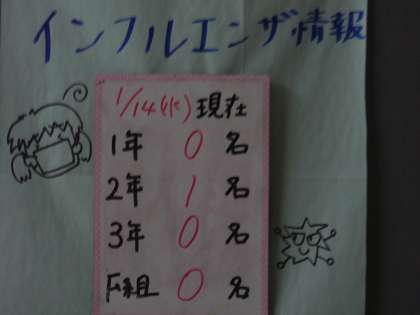 インフルエンザ情報
1/14(火)現在
1年 0 名
2年 1 名
3年 0 名
F組 0 名